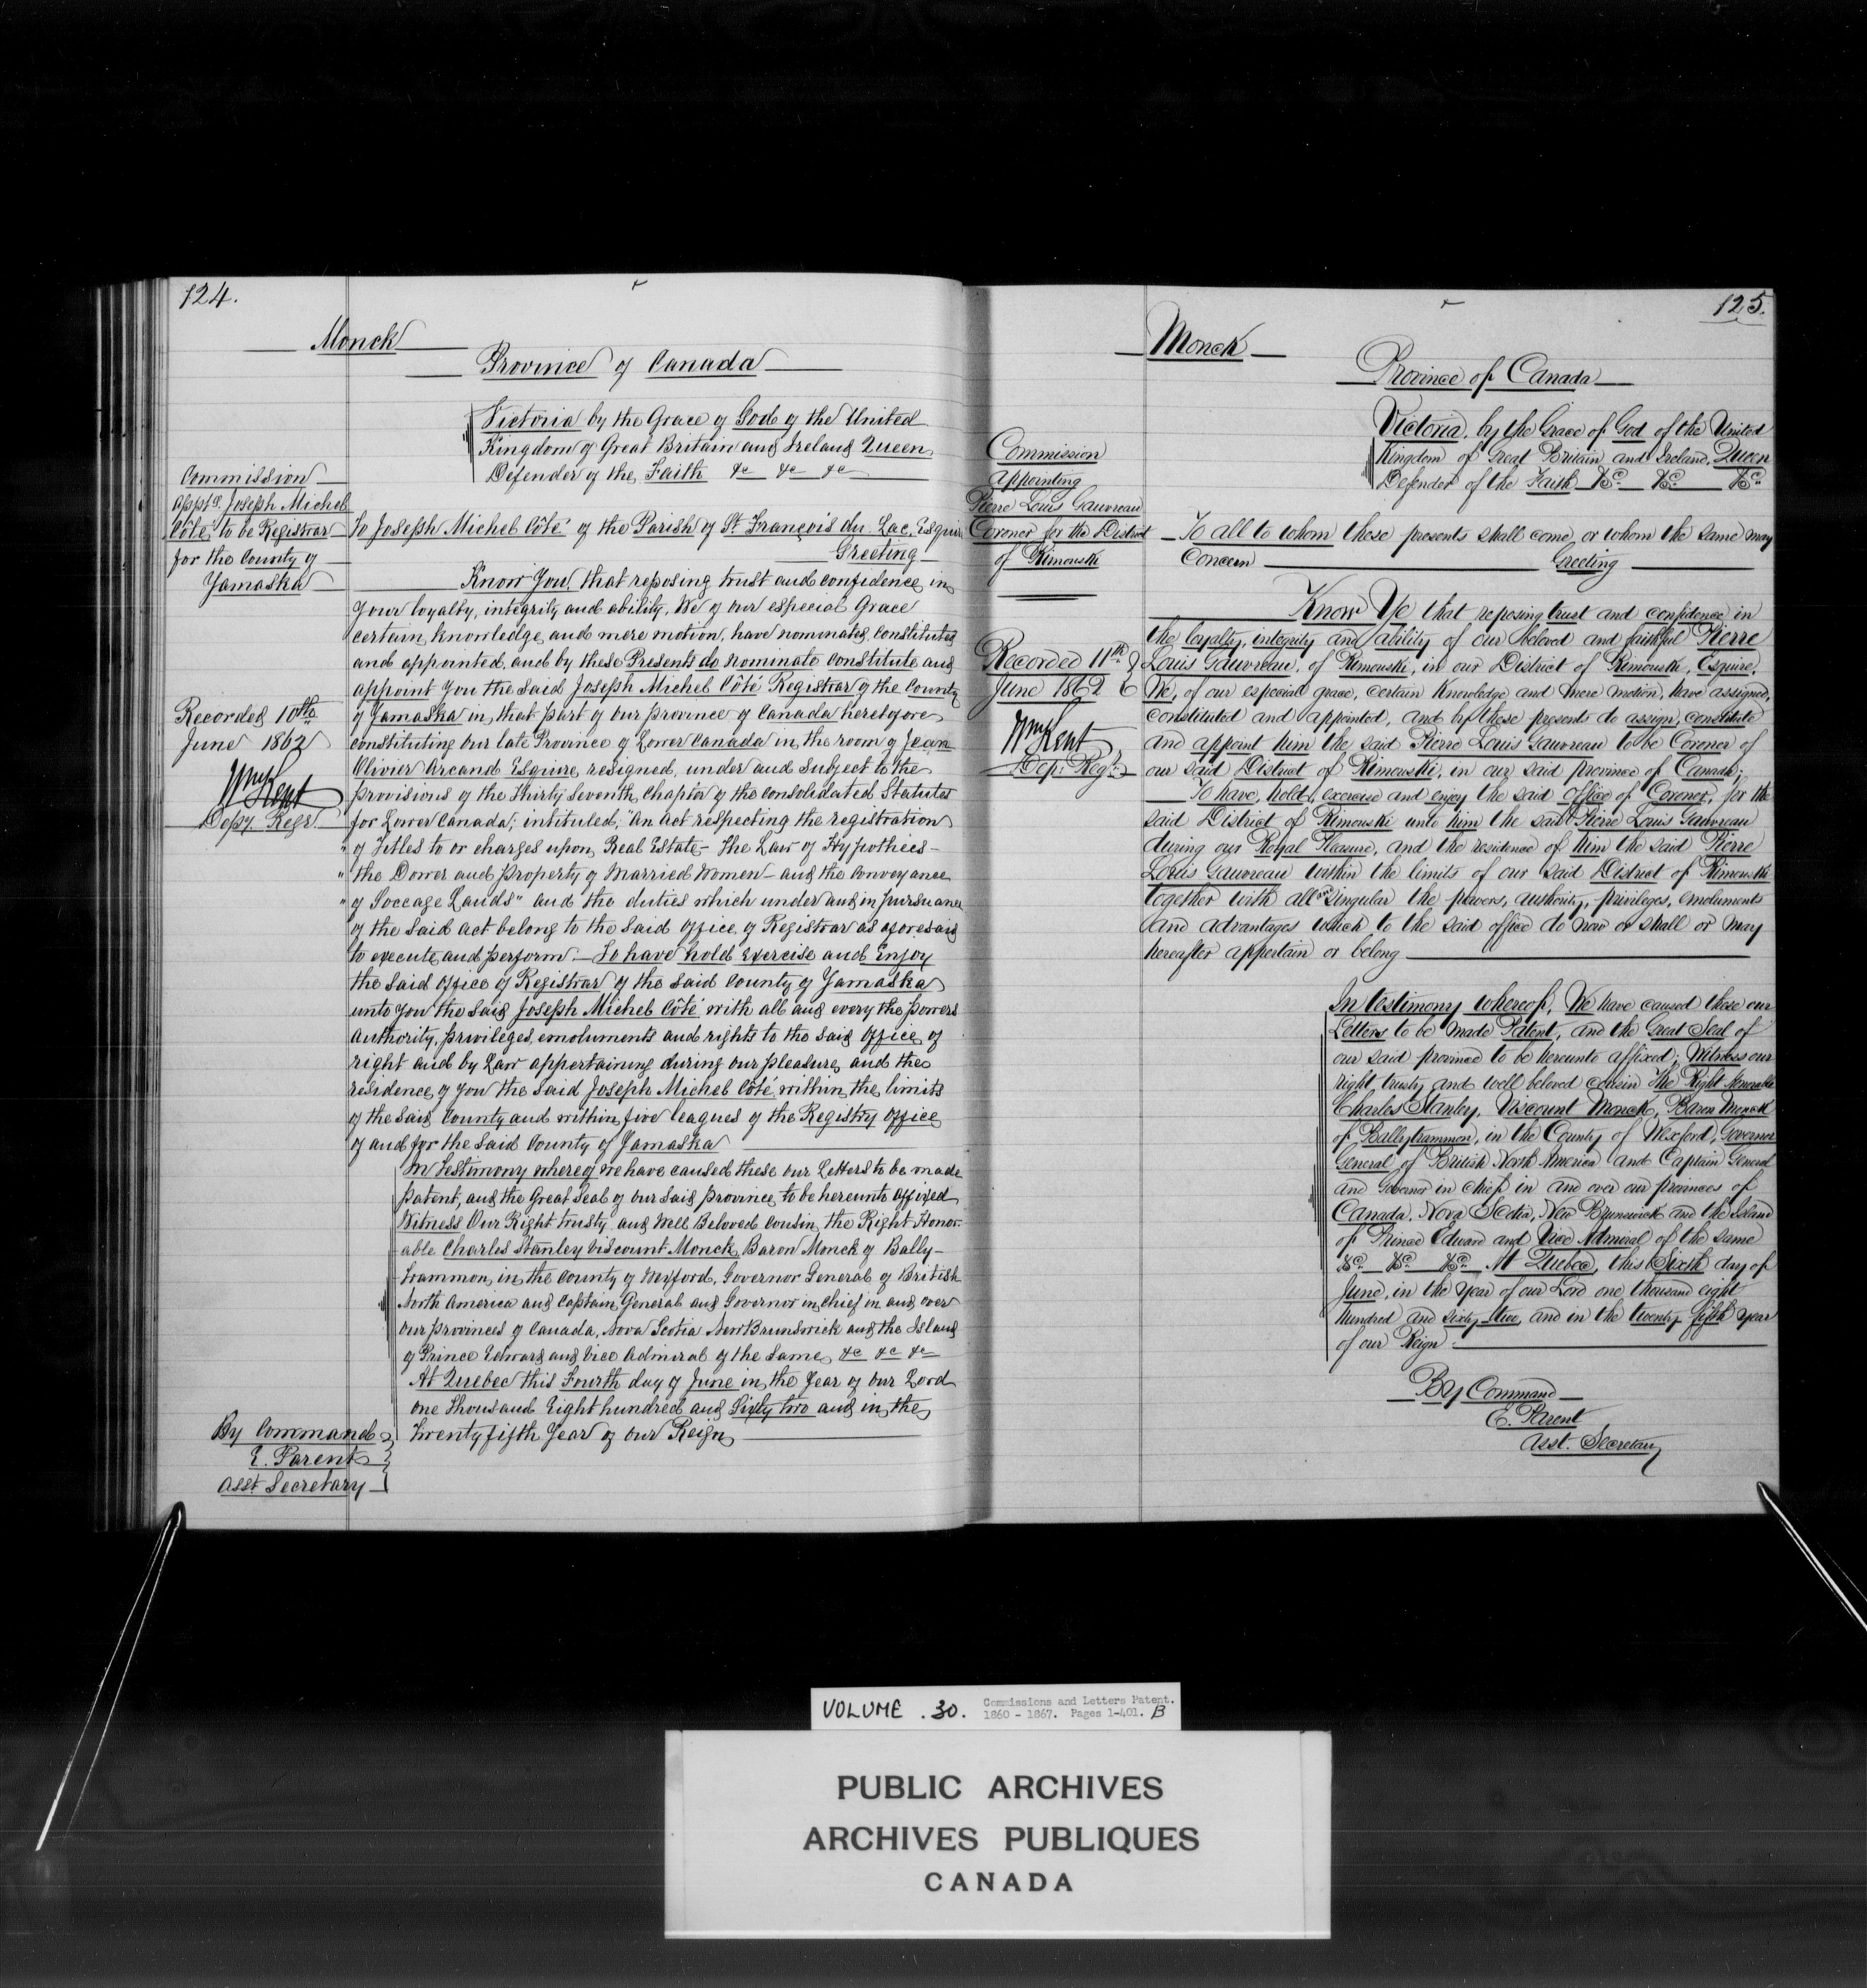 124.
Monck
Province of Canada
Victoria by the Grace of God of the United
Kingdom of Great Britain and Ireland Queen
Defender of the Faith &c &c &c
Commission
appt.g Joseph Michel
Côté, to be Registrar
for the County of
Yamaska
To Joseph Michel Côté of the Parish of St. François du Lac, Esquire
Greeting
Know You, that reposing trust and confidence in
your loyalty, integrity and ability, We of our especial Grace
certain knowledge, and mere motion, have nominated, constituted
and appointed, and by these Presents do nominate constitute and
appoint you the said Joseph Michel Côté Registrar of the County
of Yamaska in, that part of our province of Canada heretofore
constituting our late Province of Lower Canada in, the room of Jean
Olivier Arcand Esquire, resigned, under and subject to the
provisions of the Thirty Seventh, Chapter of the Consolidated Statutes
for Lower Canada; intituled; "An Act respecting the registration
" of Titles to or charges upon, Real Estate, - The Law of Hypothecs -
" the Dower and property of Married Women - and the Conveyance
" of Soccage Lands" and the duties which under and in pursuance
of the said act belong to the said office of Registrar as aforesaid
to execute, and perform. - To have hold exercise and Enjoy
the said office of Registrar of the said County of Yamaska
unto you the said Joseph Michel Côté with all and every the powers
authority, privileges, emoluments and rights to the said office, of
right and by Law appertaining during our pleasure, and the
residence of you the said Joseph Michel Côté within the limits
of the said County and within, five leagues of the Registry office
of and for the said County of Yamaska
Recorded 10th
June 1862
Wm Kent
Depy. Regr.
In Testimony whereof we have caused these our Letters to be made
Patent, and the Great Seal of our said province, to be hereunto affixed
Witness Our Right trusty and Well Beloved Cousin, the Right Honor-
able Charles Stanley Viscount Monck, Baron Monck of Bally-
trammon, in the County of Wexford, Governor General of British
North America and Captain General and Governor in Chief in and over
our provinces of Canada, Nova Scotia New Brunswick and the Island
of Prince Edward and Vice Admiral of the same, &c &c &c
At Quebec this Fourth day of June in, the Year of our Lord
one thousand Eight hundred and Sixty two and in, the
Twenty fifth Year of our Reign
By Command
E. Parent
Asst Secretary
125.
Monck
Province of Canada
Victoria, by the Grace of God of the United
Kingdom of Great Britain and Ireland, Queen
Defender of the Faith &c. &c. &c.
Commission
Appointing
Pierre Louis Gauvreau
Coroner for the District
of Rimouski
Recorded 11th
June 1862
Wm Kent
Dep: Regr.
To all to whom these presents shall come, or whom the same may
Concern Greeting
Know Ye that reposing trust and confidence in
the loyalty, integrity and ability of our beloved and faithful Pierre
Louis Gauvreau, of Rimouski, in our District of Rimouski, Esquire,
We, of our especial grace, certain knowledge and mere motion, have assigned,
constituted and appointed, and by these presents do assign, constitute
and appoint him the said Pierre Louis Gauvreau to be Coroner of
our said District of Rimouski, in our said province of Canada;
To have, hold, exercise and enjoy the said office of Coroner, for the
said District of Rimouski unto him the said Pierre Louis Gauvreau
during our Royal Pleasure, and the residence of him the said Pierre
Louis Gauvreau within the limits of our said District of Rimouski
together with all & singular the powers, authority, privileges, emoluments
and advantages which to the said office do now or shall or may
hereafter appertain or belong
In testimony whereof, We have caused these our
Letters to be made Patent, and the Great Seal of
our said province to be hereunto affixed; Witness our
right trusty and well beloved cousin The Right Honorable
Charles Stanley, Viscount Monck, Baron Monck
of Ballytrammon, in the County of Wexford, Governor
General of British North America and Captain General
and Governor in Chief in and over our provinces of
Canada, Nova Scotia, New Brunswick and the Island
of Prince Edward and Vice Admiral of the same
&c. &c. &c. At Quebec, this Sixth day of
June, in the Year of our Lord one thousand eight
hundred and sixty-two, and in the twenty fifth year
of our Reign.
By Command
E. Parent
Asst. Secretary
VOLUME .30. Commissions and Letters Patent.
1860 - 1867. Pages 1-401. B
PUBLIC ARCHIVES
ARCHIVES PUBLIQUES
CANADA